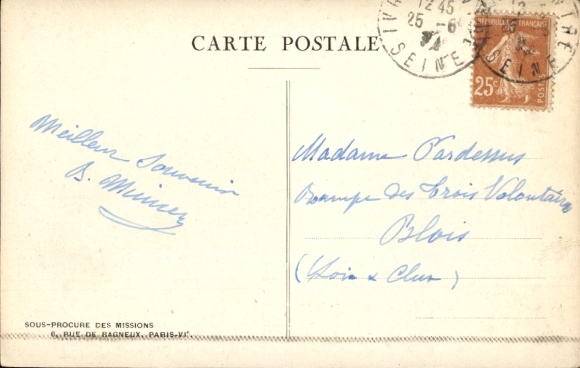 CARTE POSTALE
12 45
25 -6
SEINE
SEINE
RÉPUBLIQUE FRANÇAISE
25c
POSTES
Meilleur Souvenir
B.
Madame Pardessus
Rampe des Trois Volontaires
Blois
(Loir & Cher)
SOUS-PROCURE DES MISSIONS
6, RUE DE BAGNEUX, PARIS-VIe.